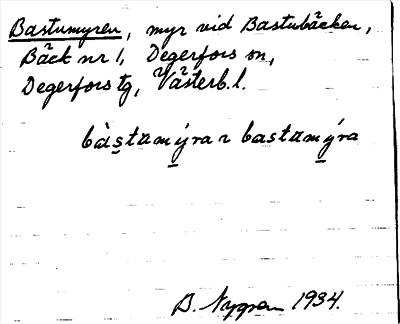 Bastumyren, myr vid Bastubäcken,
Bäck nr 1, Degerfors sn,
Degerfors tg, Västerb. l.
bàstamýra ₂ bastamýra
B. Nygren 1934.